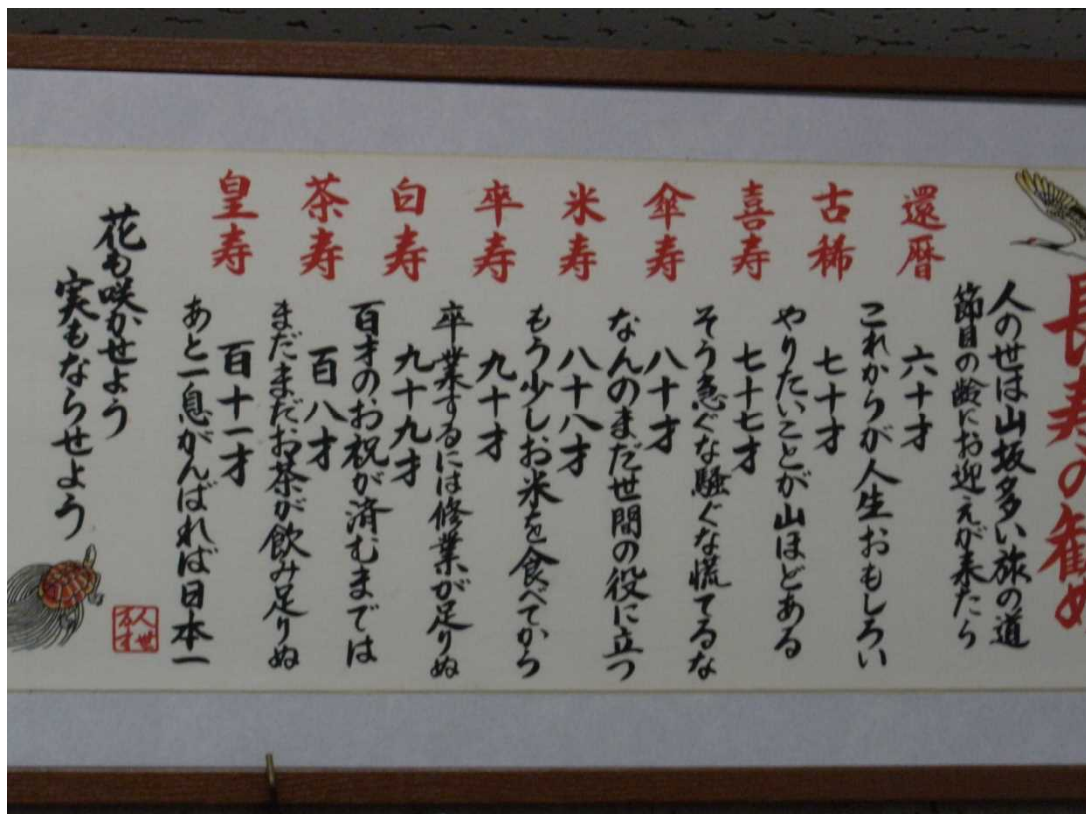 長寿の勧め
人の世は山坂多い旅の道
節目の齢にお迎えが来たら
還暦
六十才
これからが人生おもしろい
古稀
七十才
やりたいことが山ほどある
喜寿
七十七才
そう急ぐな騒ぐな慌てるな
傘寿
八十才
なんのまだ世間の役に立つ
米寿
八十八才
もう少しお米を食べてから
卒寿
九十才
卒業するには修業が足りぬ
白寿
九十九才
百才のお祝が済むまでは
茶寿
百八才
まだまだお茶が飲み足りぬ
皇寿
百十一才
あと一息がんばれば日本一
花も咲かせよう
実もならせよう